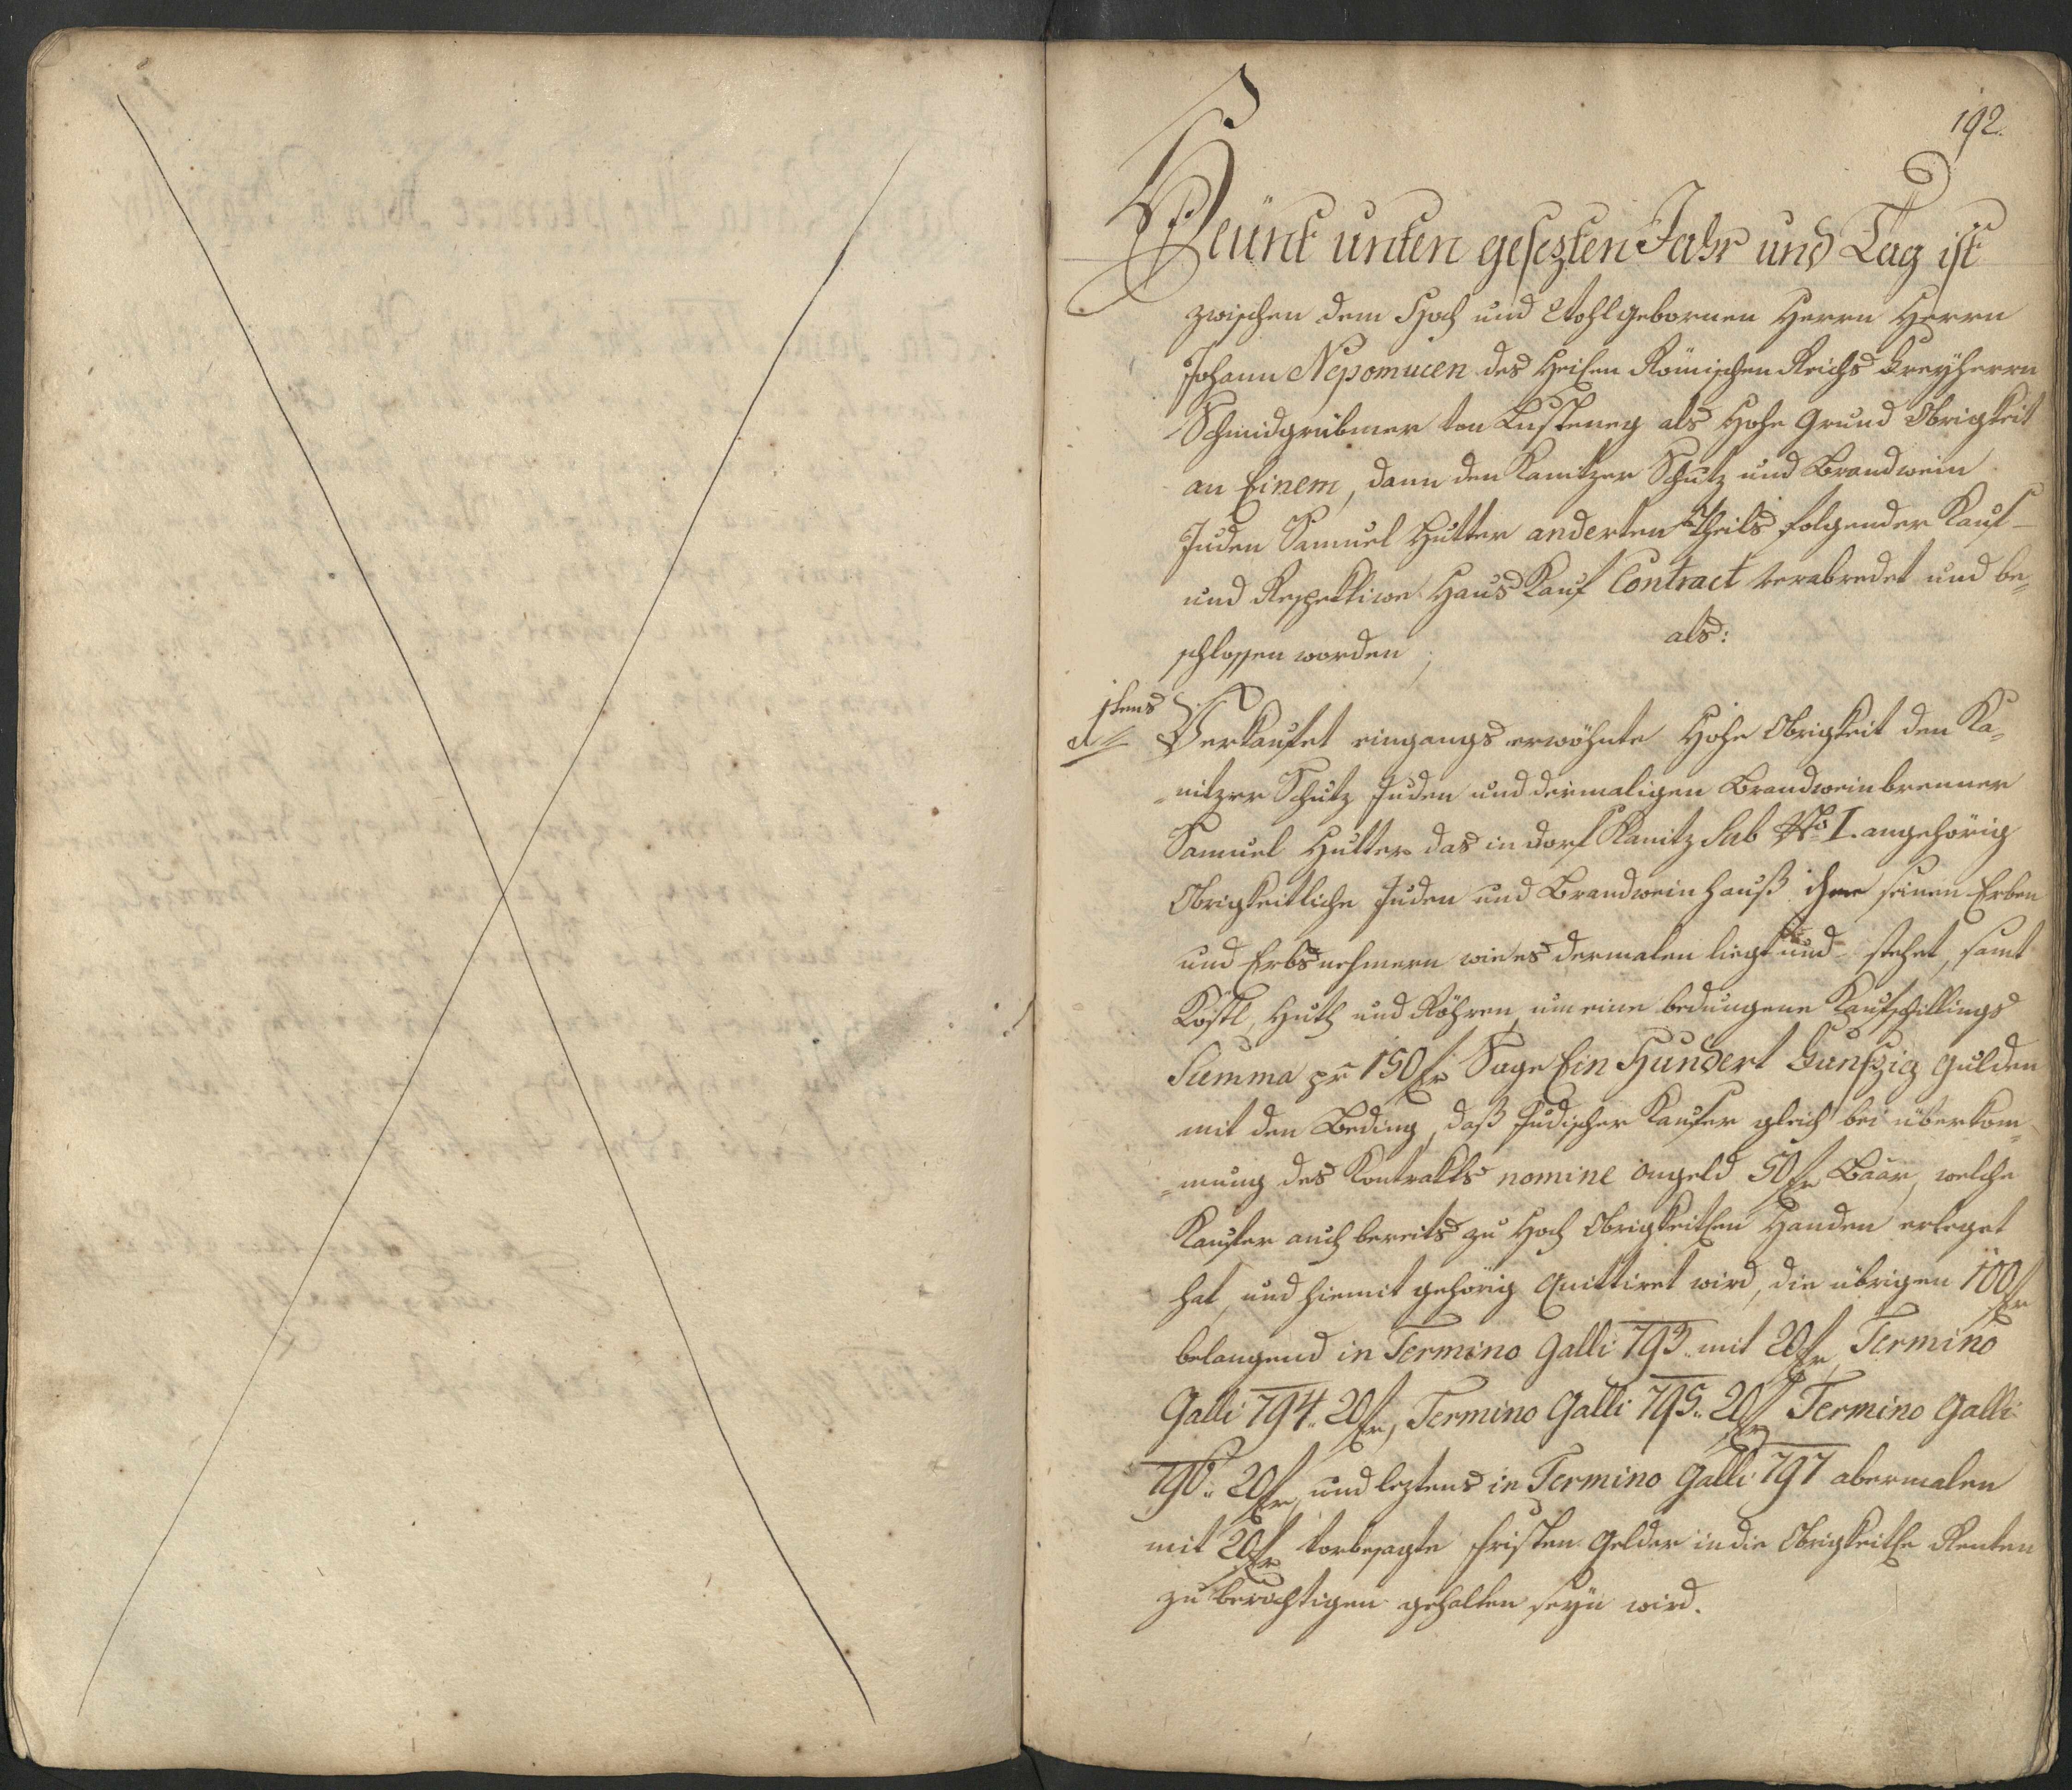 192.
Heünt unten gesezten Jahr und Tag ist
zwischen dem Hoch und Wohlgebornen Herrn Herrn
Johann Nepomucen des Heilen Römischen Reichs Freyherrn
Schmidgrübmer von Lusteneg als Hohe Grund Obrigkeit
an Einem, dann den Kanitzer Schutz und Brandwein
Juden Samuel Hutter anderten Theils folgender Kauf-
und Respektive Haus Kauf Contract verabredet und be=
schlossen worden; als:
1stens
Verkaufet eingangs erwöhnte Hohe Obrigkeit den Ka=
=nitzer Schutz Juden und dermaligen Brandweinbrenner
Samuel Hutter das in Dorf Kanitz Sub No I. angehörig
Obrigkeitliche Juden und Brandwein Hauß ihme seinen Erben
und Erbsnehmern wie es dermalen liegt und stehet, samt
Kößl, Huth und Röhren, um eine bedungene Kaufschillings
Summa pr 150 fr Sage Ein Hundert Funfzig Gulden
mit den Beding, daß Judischer Kaufer gleich bei überkom=
=mung des Kontrakts nomine Angeld 50 fr Baar, welche
Kaufer auch bereits zu Hoch Obrigkeitlen Handen erleget
hat, und hiemit gehörig Quittiret wird, die übrigen 100 fr
belangend in Termino Galli 793. mit 20 fr, Termino
Galli 794. 20 fr, Termino Galli 795. 20 fr Termino Galli
796. 20 fr, und leztens in Termino Galli 797 abermalen
mit 20 fr vorbesagte Fristen Gelder in die Obrigkeitle Renten
zu berichtigen gehalten seyn wird.